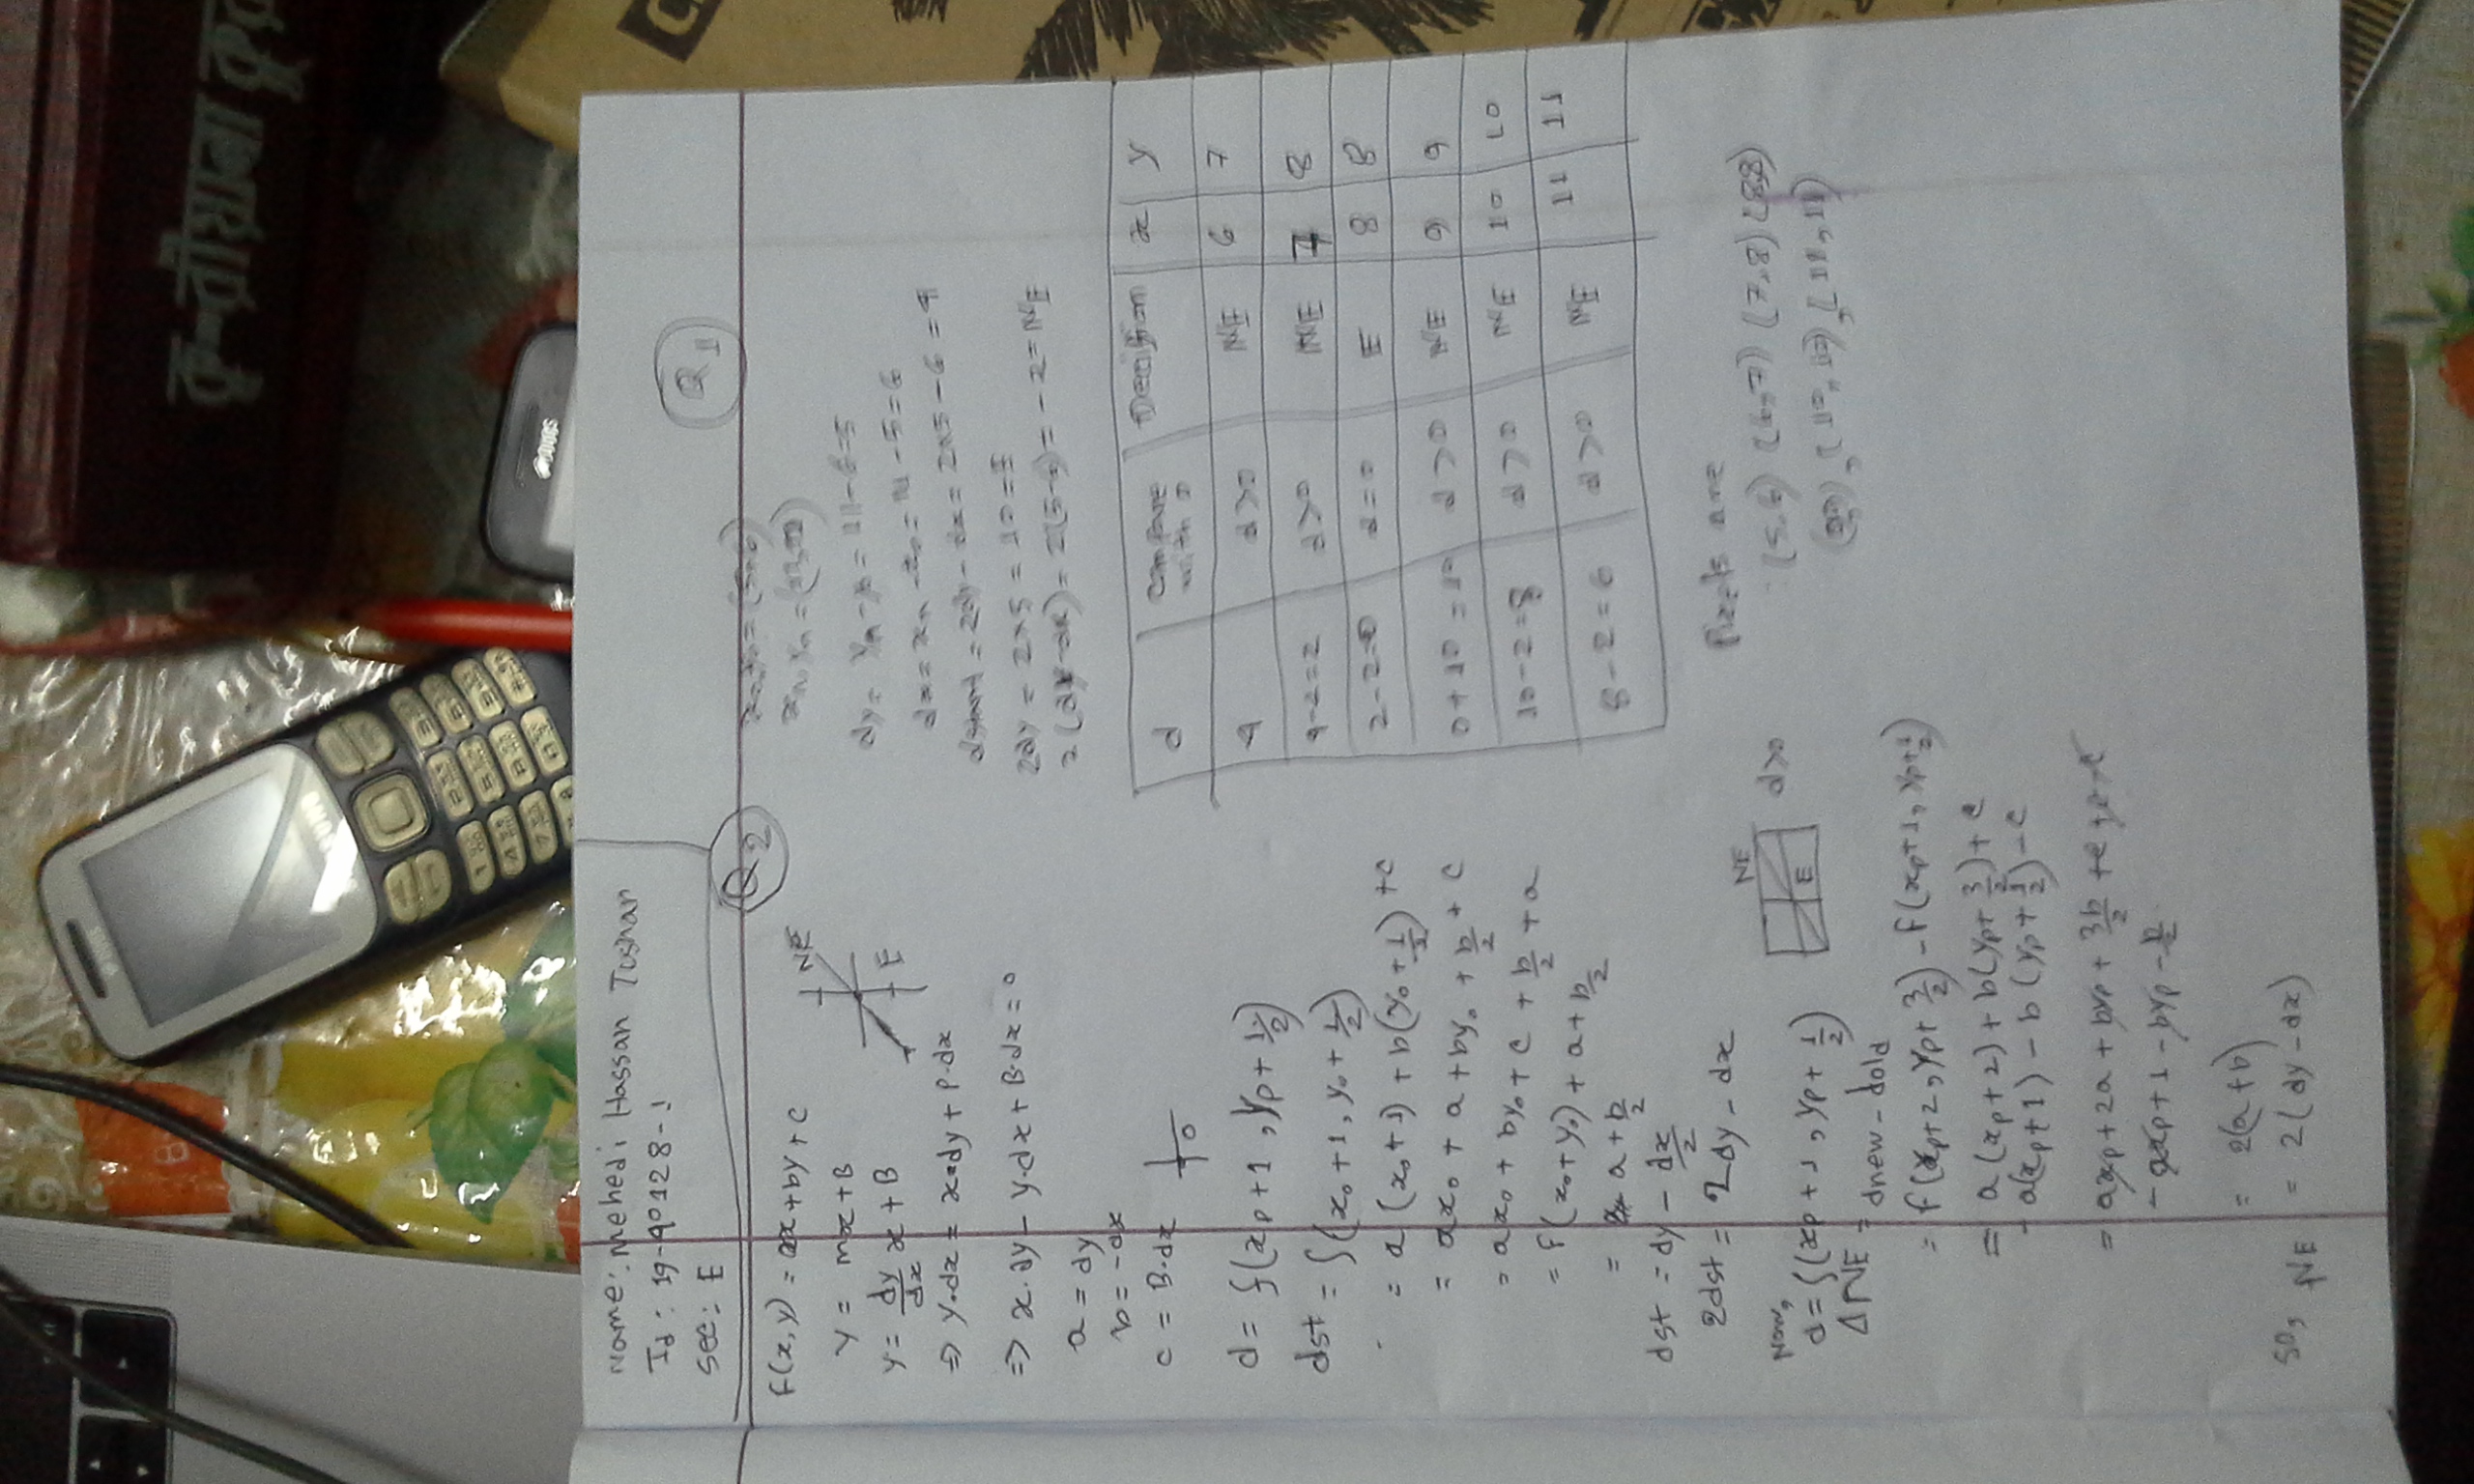 SAMSUNG
DUOS
কু-রীয়ানা কুর
Name: Mehedi Hassan Toshan
Id: 19-40128-1
Sec: E
Q2
f(x,y) = ax+by+c
y = mx+B
y = dy/dx x + B
⇒ y.dx = x.dy + B.dx
⇒ x.dy - y.dx + B.dx = 0
a = dy
b = -dx
c = B.dx
NE
E
0
d = f(xp+1, yp+1/2)
dst = f(x0+1, y0+1/2)
= a(x0+1) + b(y0+1/2) + c
= ax0 + a + by0 + b/2 + c
= ax0 + by0 + c + b/2 + a
= f(x0+y0) + a + b/2
= a + b/2
dst = dy - dx/2
2dst = 2dy - dx
Now,
d = f(xp+1, yp+1/2)
NE
E
d>0
ΔNE = dnew - dold
= f(xp+2, yp+3/2) - f(xp+1, yp+1/2)
= a(xp+2) + b(yp+3/2) + c
- a(xp+1) - b(yp+1/2) - c
= axp + 2a + byp + 3b/2 + c + c - c
- axp + 1 - byp - b/2
= 2(a+b)
so, NE = 2(dy-dx)
Q1
x0,y0 = (5,6)
xn,yn =
dy = yn - y0 = 11-6=5
dx = xn - x0 = 11-5=6
dstart = 2dy - dx = 2×5-6 = 4
2dy = 2×5 = 10 = E
2(dy-dx) = 2(5-6) = -2 = NE
d compare with 0 Decision x y
4 d>0 NE 6 7
4-2=2 d>0 NE 7 8
2-2=0 d=0 E 8 8
0+10=10 d>0 NE 9 9
10-2=8 d>0 NE 10 10
8-2=6 d>0 NE 11 11
Pixels are
(5,6) (6,7) (7,8) (8,8)
(9,9), (10,10), (11,11)